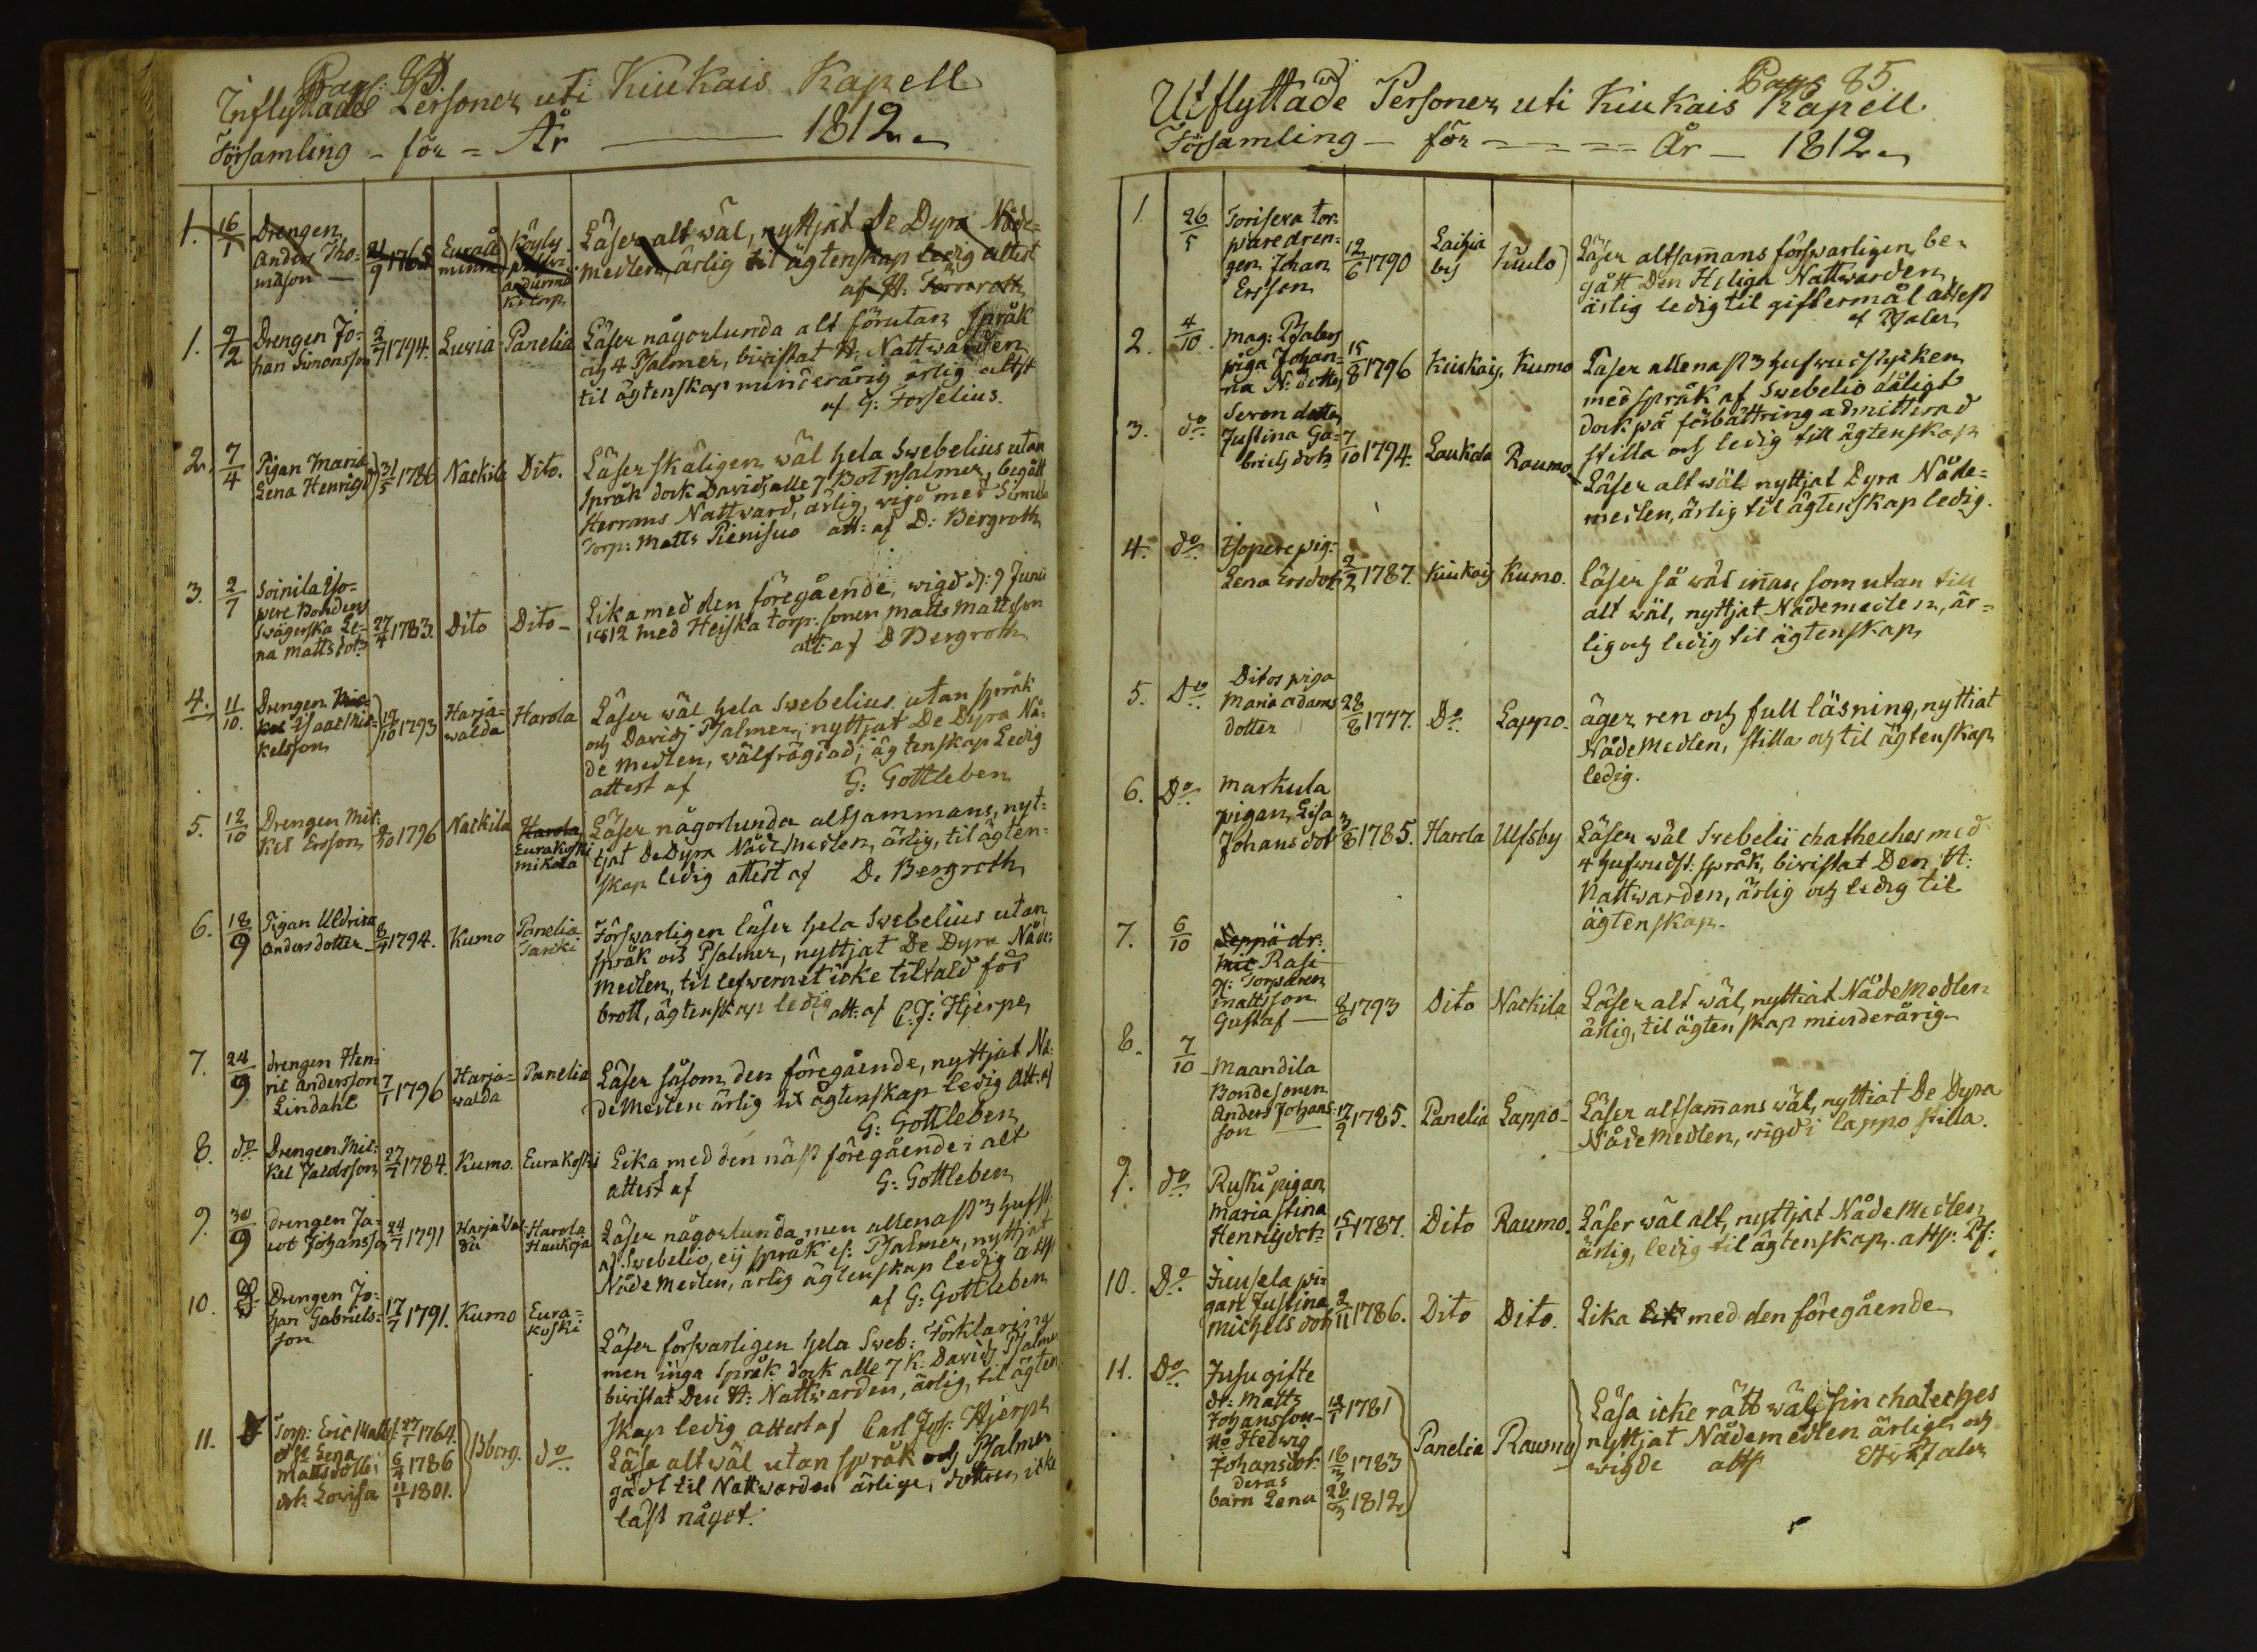 Pag: 84
Inflyttade Personer uti Kiukais Kapell
Församling - för = År 1812.
1. 16/1 Drengen Anders Thomason 21/9 1765 Euraå
Läser alt wäl, nyttjat De Dyra Nåde=
medlen, ärlig til ägtenskap ledig attest
af H:
1. 9/12 Drengen Jo= 2/7 1794. Luvia Panelia Läser någorlunda alt förutan språk
han Simonsson och 4 Psalmer, biwistat H. Nattwarden
til ägtenskap minderårig ärlig attst
af G: Forselius.
2. 7/4 Pigan Maria 31/5 1786 Nackila Dito. Läser skäligen wäl hela Swebelius utan
Lena Henrigsd språk dock Davids alle 7 Botpsalmer, begått
Herrans Nattward, ärlig, wigd med Simula
Torp: Matts Pienisuo att: af D: Bergroth
3. 2/7 Soinila Ijo=
pere Bondens
Swägerska Le= 27/4 1783. Dito Dito - Lika med den föregående, wigd d: 9 Junii
na Mattsdotr 1812 med Heiska torp. sonen Matts Mattsson
att: af D Bergroth
4. 11/10. Drengen Mic=
kel Isaac Mic= 19/10 1793 Harja= Harola Läser wäl hela Swebelius utan språk
kelsson walda och Davids Psalmer, nyttjat De Dyra Nå=
de Medlen, wälfrägdad, ägtenskap Ledig
attest af G: Gottleben
5. 12/10 Drengen Mic: 1796 Nackila Harola Läser någorlunda altsammans, nyt=
kel Ersson Eurakoski tjat De Dyra Nåde Medlen, ärlig, til ägten=
Mikola skap ledig attest af D. Bergroth
6. 18/9 Pigan Uldrika 1794. Kumo Panelia Förswarligen läser hela Swebelius utan
Anders dotter Tarcki språk och Psalmer, nyttjat De Dyra Nåde:
Medlen, til lefwernet icke tiltald för
brott, ägtenskap ledig att: af C: J: Hjerpe
7. 24/9 drengen Hen=
ric Andersson 7/1 1796 Harja= Panelia Läser såsom den föregående, nyttjat Nå=
Lindahl walda de Medlen ärlig til ägtenskap ledig att. af
G: Gottleben
8. do Drengen Mic: 27/7 1784. Kumo. Eurakoski Lika med den näst föregående i alt
kel Jacobsson attest af G: Gottleben
9. 30/9 drengen Ja= 24/7 1791 Harjawal= Harola Läser någorlunda men allenast 3 hufst:
cob Johansson da Haukoja af Swebelio, eij språk el: Psalmer, nyttjat
Nåde Medlen, ärlig ägtenskap ledig attst
af G: Gottleben
10. Drengen Jo= 17/7 1791. Kumo Eura=
han Gabriels= koski Läser förswarligen hela Sweb: Förklaring
son men inga språk dock alle 7 K: Davids Psalmer
biwistat Den H: Nattwarden, ärlig, til ägten=
skap ledig attest af Carl Joh: Hjerpe
11. Torp: Eric Matts: 27/1 1764.
Lena
Mattsdotter 6/4 1786 Bborg. do Läsa alt wäl utan språk och Psalmer
dotr Lovisa 11/1 1801. gådt til Nattwarden ärlige, dottren icke
läst något.
Pag: 85.
Utflyttade Personer uti Kiukais Kapell
Församling - för - - - - År - 1812.
1. 26/5 Torisera tor=
pare dren=
gen Johan 12/6 1790 Laihia by Läser altsammans förswarligen, be=
Ersson gått Den Heliga Nattwarden
ärlig ledig til giftermål attest
af Psaler
2. 4/10. Mag: Psalers
piga Johan= 15/8 1796 Kiukais. Kumo Läser allenast 3 hufwudstycken
na N: dotter med språk af Swebelio dåligt
dock på förbättring admitterad
stilla och ledig till ägtenskap
3. do Seven dotter
Justina Ga= 7/10 1794. Laukola Raumo Läser alt wäl nyttjat Dyra Nåde=
briels dotr medlen, ärlig til ägtenskap ledig.
4. do Ijopere pig:
Lena Ersdotr 2/2 1787. Kiukais Kumo. Läser så wäl innan som utan till
alt wäl, nyttjat Nådemedlen, är=
lig och ledig til ägtenskap
5. Do Ditos piga
Maria Adams 28/8 1777. Do Lappo. äger ren och full läsning, nyttiat
dotter Nåde Medlen, stilla och til ägtenskap
ledig.
6. Do Markula
pigan Lisa
Johans dotr 3/8 1785. Harola Ulfsby Läser wäl Svebelii chatheches med
4 hufwudst: språk, biwistat Den H:
Nattwarden, ärlig och ledig til
ägtenskap.
7. 6/10 Seppä dr:
Mic Rasi
gl: Torparen
Mattsson
Gustaf 8/6 1793 Dito Nackila Läser alt wäl, nyttiat Nåde Medlen
ärlig, til ägtenskap minderårig
8. 7/10 Maandila
Bonde sonen
Anders Johans: 17/9 1785. Panelia Lappo - Läser altsammans wäl, nyttiat De Dyra
son Nåde Medlen, wigd i Lappo stilla.
9. do Ruski pigan
Maria Stina
Henrigdotr 15/1 1787. Dito Raumo. Läser wäl alt, nyttjat Nåde Medlen
ärlig, ledig til ägtenskap. attst: Ps:
10. Do Juusela pi=
gan Justina
Michels dotr 2/11 1786. Dito Dito. Lika lik med den föregående
11. Do Jusu gifte
dr: Matts
Johansson 12/1 1781
Ho Hedwig
Johansdotr 16/3 1783 Panelia Raumo Läsa icke rätt wäl sin chateches
deras nyttjat Nådemedlen ärlige, och
barn Lena 28/3 1812 wigde attst Psaler